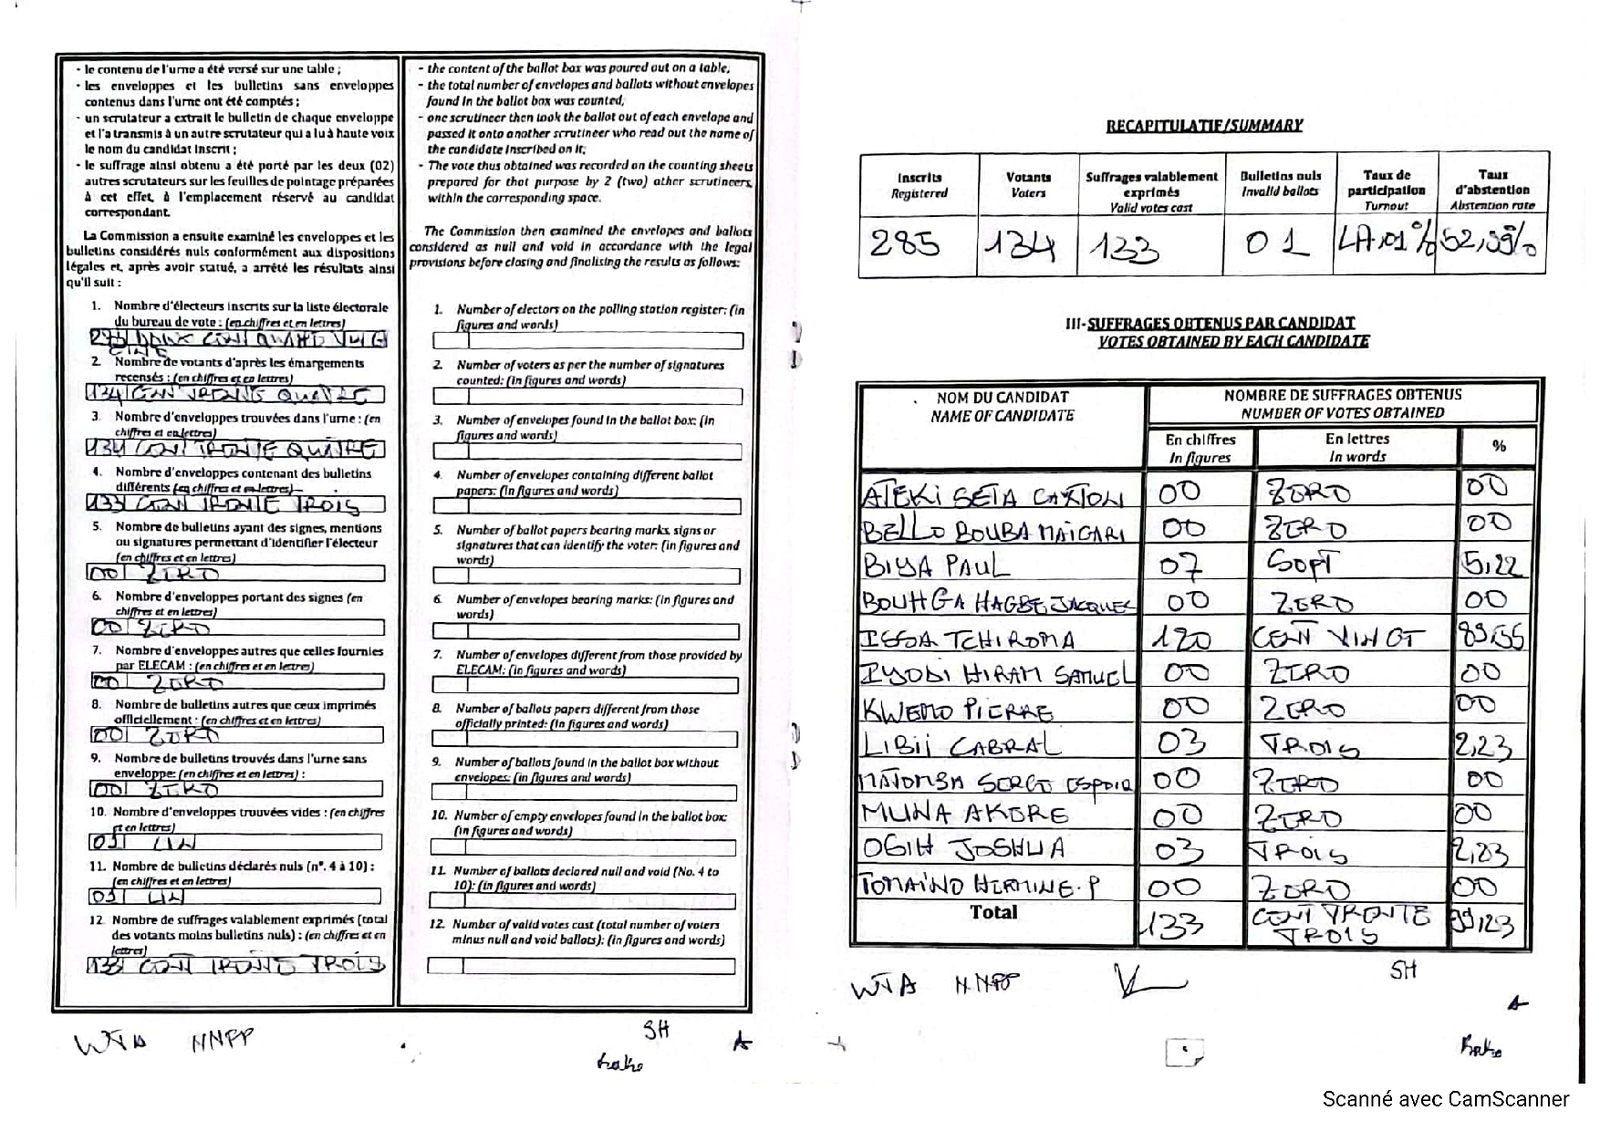 - le contenu de l'urne a été versé sur une table ;
- les enveloppes et les bulletins sans enveloppes
contenus dans l'urne ont été comptés ;
- un scrutateur a extrait le bulletin de chaque enveloppe
et l'a transmis à un autre scrutateur qui a lu à haute voix
le nom du candidat inscrit ;
- le suffrage ainsi obtenu a été porté par les deux (02)
autres scrutateurs sur les feuilles de pointage préparées
à cet effet, à l'emplacement réservé au candidat
correspondant.
La Commission a ensuite examiné les enveloppes et les
bulletins considérés nuls conformément aux dispositions
légales et, après avoir statué, a arrêté les résultats ainsi
qu'il suit :
1. Nombre d'électeurs inscrits sur la liste électorale
du bureau de vote : (en chiffres et en lettres)
2. Nombre de votants d'après les émargements
recensés : (en chiffres et en lettres)
134 CENT TRENTE QUATRE
3. Nombre d'enveloppes trouvées dans l'urne : (en
chiffres et en lettres)
134 CENT TRENTE QUATRE
4. Nombre d'enveloppes contenant des bulletins
différents (en chiffres et en lettres)
133 CENT TRENTE TROIS
5. Nombre de bulletins ayant des signes, mentions
ou signatures permettant d'identifier l'électeur
(en chiffres et en lettres)
00 ZERO
6. Nombre d'enveloppes portant des signes (en
chiffres et en lettres)
00 ZERO
7. Nombre d'enveloppes autres que celles fournies
par ELECAM : (en chiffres et en lettres)
00 ZERO
8. Nombre de bulletins autres que ceux imprimés
officiellement : (en chiffres et en lettres)
00 ZERO
9. Nombre de bulletins trouvés dans l'urne sans
enveloppe: (en chiffres et en lettres) :
00 ZERO
10. Nombre d'enveloppes trouvées vides : (en chiffres
et en lettres)
01 UN
11. Nombre de bulletins déclarés nuls (n°. 4 à 10) :
(en chiffres et en lettres)
01 UN
12. Nombre de suffrages valablement exprimés (total
des votants moins bulletins nuls) : (en chiffres et en
lettres)
133 CENT TRENTE TROIS
- the content of the ballot box was poured out on a table,
- the total number of envelopes and ballots without envelopes
found in the ballot box was counted,
- one scrutineer then took the ballot out of each envelope and
passed it onto another scrutineer who read out the name of
the candidate inscribed on it;
- The vote thus obtained was recorded on the counting sheets
prepared for that purpose by 2 (two) other scrutineers,
within the corresponding space.
The Commission then examined the envelopes and ballots
considered as null and void in accordance with the legal
provisions before closing and finalising the results as follows:
1. Number of electors on the polling station register: (in
figures and words)
2. Number of voters as per the number of signatures
counted: (in figures and words)
3. Number of envelopes found in the ballot box: (in
figures and words)
4. Number of envelopes containing different ballot
papers: (in figures and words)
5. Number of ballot papers bearing marks, signs or
signatures that can identify the voter: (in figures and
words)
6. Number of envelopes bearing marks: (in figures and
words)
7. Number of envelopes different from those provided by
ELECAM: (in figures and words)
8. Number of ballots papers different from those
officially printed: (in figures and words)
9. Number of ballots found in the ballot box without
envelopes: (in figures and words)
10. Number of empty envelopes found in the ballot box:
(in figures and words)
11. Number of ballots declared null and void (No. 4 to
10): (in figures and words)
12. Number of valid votes cast (total number of voters
minus null and void ballots): (in figures and words)
WTA NNPP SH
RECAPITULATIF/SUMMARY
Inscrits Votants Suffrages valablement Bulletins nuls Taux de Taux
Registered Voters exprimés Invalid ballots participation d'abstention
Valid votes cast Turnout Abstention rate
285 134 133 01
III-SUFFRAGES OBTENUS PAR CANDIDAT
VOTES OBTAINED BY EACH CANDIDATE
NOM DU CANDIDAT NOMBRE DE SUFFRAGES OBTENUS
NAME OF CANDIDATE NUMBER OF VOTES OBTAINED
En chiffres En lettres %
In figures In words
ATEKI SETA CAXTON 00 ZERO 00
BELLO BOUBA MAIGARI 00 ZERO 00
BIYA PAUL 07 SEPT 5,22
BOUHGA HAGBE JACQUES 00 ZERO 00
ISSA TCHIROMA 120 CENT VINGT 89,55
IYODI HIRAM SAMUEL 00 ZERO 00
KWEMO PIERRE 00 ZERO 00
LIBII CABRAL 03 TROIS 2,23
MATOMBA SERGE ESPOIR 00 ZERO 00
MUNA AKERE 00 ZERO 00
OSIH JOSHUA 03 TROIS 2,23
TOMAINO HERMINE.P 00 ZERO 00
Total 133 CENT TRENTE TROIS 99,23
WTA NNPP SH
Scanné avec CamScanner